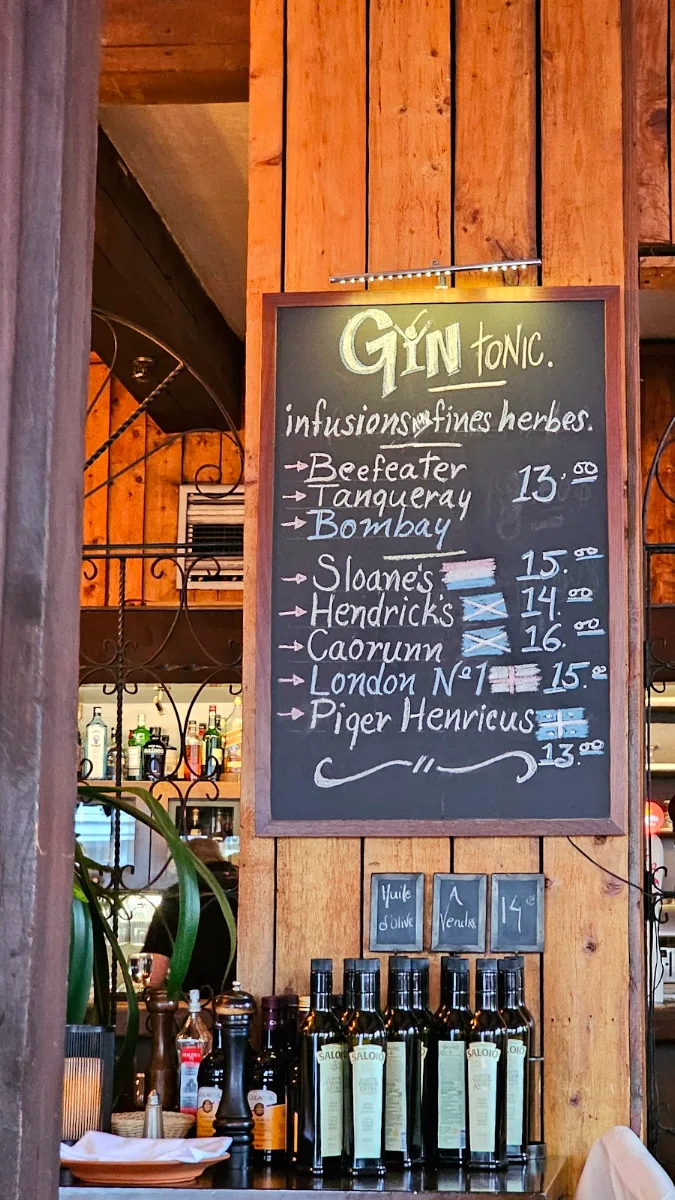 GIN tonic.
infusions aux fines herbes.
→ Beefeater
→ Tanqueray 13.00
→ Bombay
→ Sloane's 15.00
→ Hendrick's 14.00
→ Caorunn 16.00
→ London Nº1 15.00
→ Piger Henricus
13.00
Huile
d'olive
A
Vendre
14.00
SALOIO
SALOIO
SALOIO
SALOIO